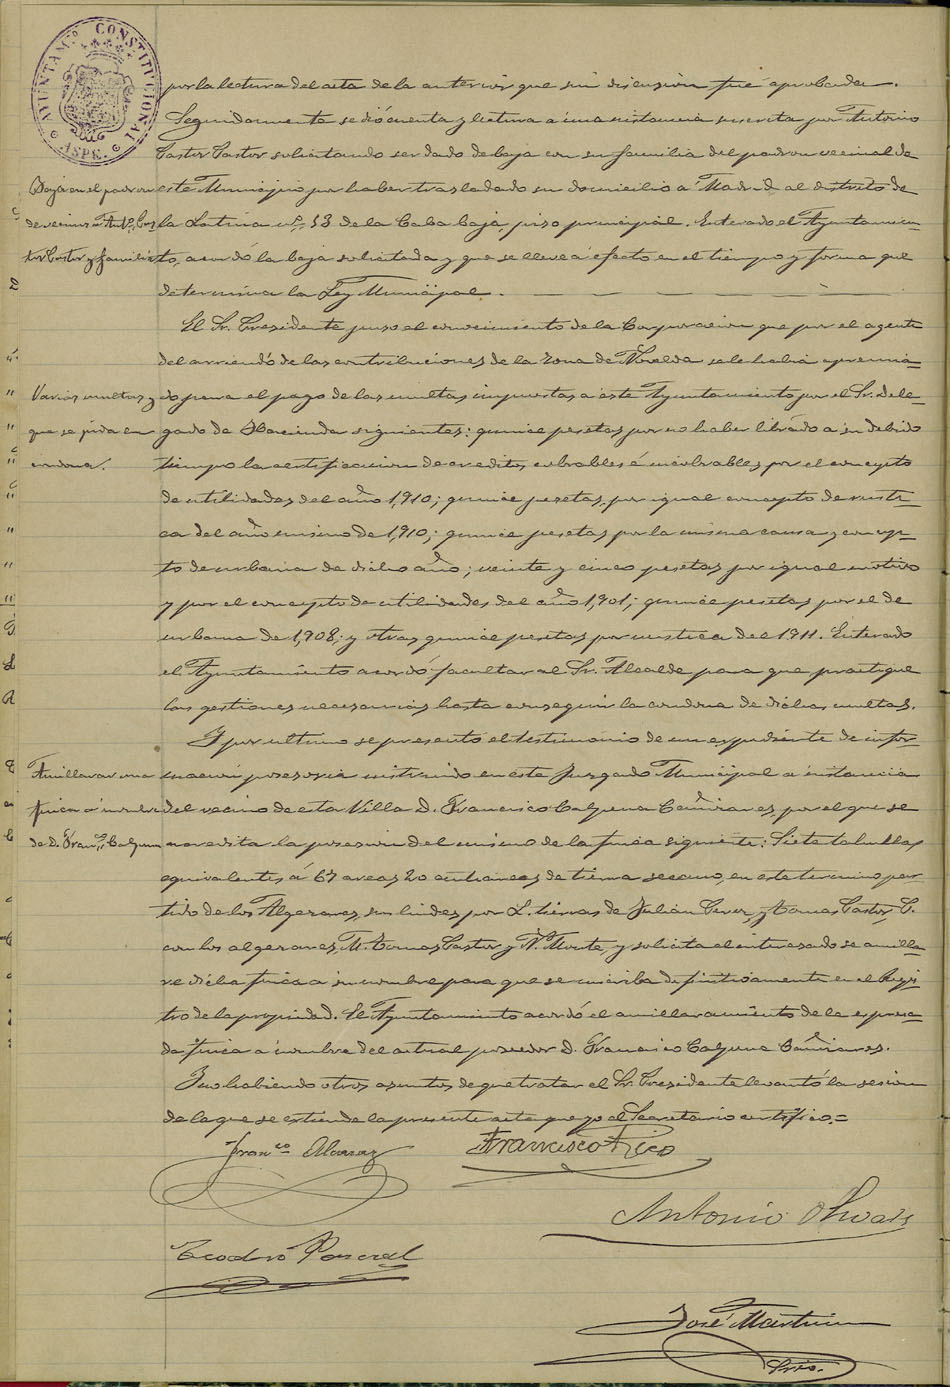 AYUNTAM.º CONSTITUCIONAL
ASPE.
por la lectura del acta de la anterior que sin discusion fué aprobada.
Seguidamente se dió cuenta y lectura a una instancia suscrita por Antonio
Castor Castor solicitando ser dado de baja con su familia del padron vecinal de
Baja en el padron
de vecinos á Ant.º Cas
tor Castor y familia
este Municipio por haber trasladado su domicilio a Madrid al distrito de
la Latina n.º 13 de la Caba baja, piso principal. Enterado el Ayuntamien-
to, acordó la baja solicitada y que se lleve á efecto en el tiempo y forma que
determina la Ley Municipal.
El Sr. Presidente puso el conocimiento de la Corporacion que por el agente
del arriendo de las contribuciones de la zona de Novelda se le habia apremia-
Varias multas y
que se pida su
condona.
do para el pago de las multas impuestas a este Ayuntamiento por el Sr. Dele-
gado de Hacienda siguientes: quince pesetas por no haber librado a su debido
tiempo la certificacion de creditos cobrables é incobrables por el concepto
de utilidades del año 1,910; quince pesetas, por igual concepto de rusti-
ca del año mismo de 1,910; quince pesetas por la misma causa y concep-
to de urbana de dicho año; veinte y cinco pesetas por igual motivo
y por el concepto de utilidades del año 1,901; quince pesetas por el de
urbana de 1,908; y otras quince pesetas por rustica del 1911. Enterado
el Ayuntamiento acordó facultar al Sr. Alcalde para que practique
las gestiones necesarias hasta conseguir la condona de dichas multas.
Y por ultimo se presentó el testimonio de un expediente de infor-
Amillarar una
finca á nombre
de D. Fran.co Calpena
macion posesoria instruido en este Juzgado Municipal a instancia
del vecino de esta Villa D. Francisco Calpena Cañizares, por el que se
acredita la posesion del mismo de la finca siguiente: Siete tahullas
equivalentes á 67 areas 20 centiareas de tierra secano, en este termino par-
tido de los Algezares, sus lindes por L. tierras de Julián Cerver, y Tomas Castor P.
con los algezares, M. Tomas Castor y N. Monte, y solicita el interesado se amilla-
re dicha finca a su nombre para que se inscriba definitivamente en el Regis-
tro de la propiedad. El Ayuntamiento acordó el amillaramiento de la expresa-
da finca a nombre del actual poseedor D. Francisco Calpena Cañizares.
Y no habiendo otros asuntos de que tratar el Sr. Presidente levantó la sesion
de la que se estiende la presente acta que yo el Secretario certifico.=
Fran.co Alcaraz
Francisco Rico
Antonio
Teodoro Pascual
José Martinez
Srio.